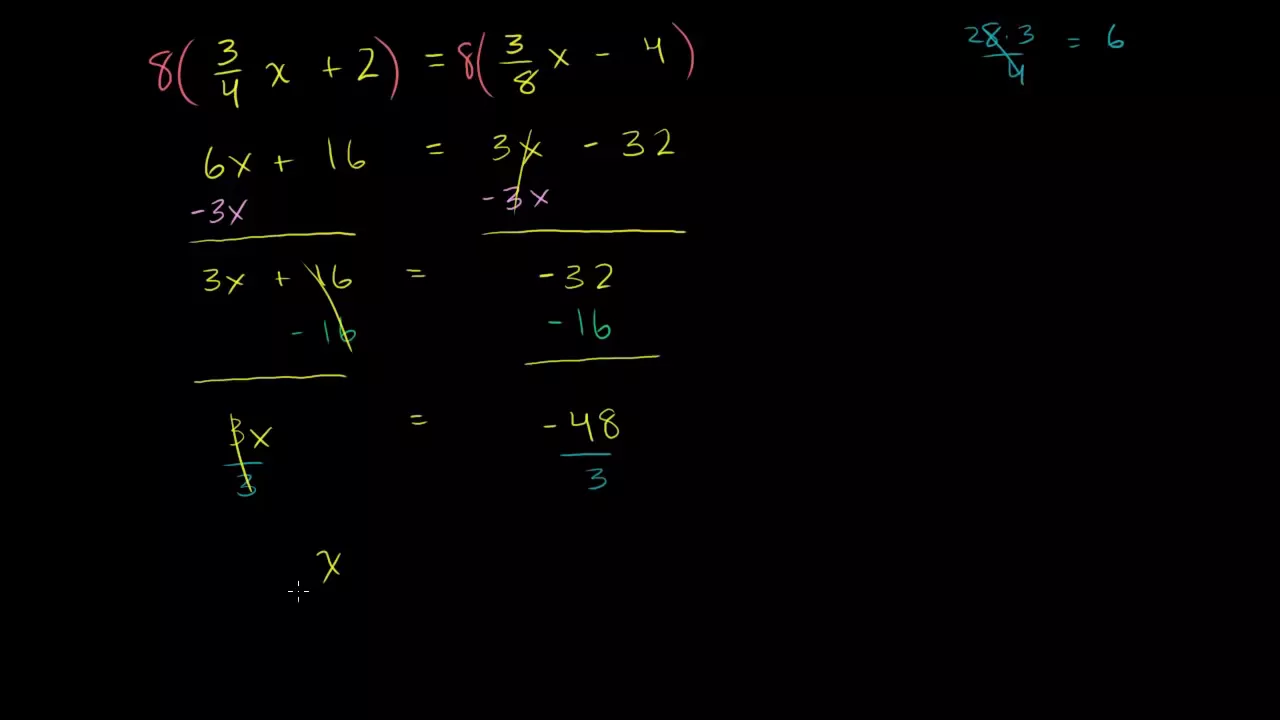 8( 3/4 x + 2 ) = 8( 3/8 x - 4 )
28·3/4 = 6
6x + 16 = 3x - 32
-3x -3x
3x + 16 = -32
-16 -16
3x/3 = -48/3
x